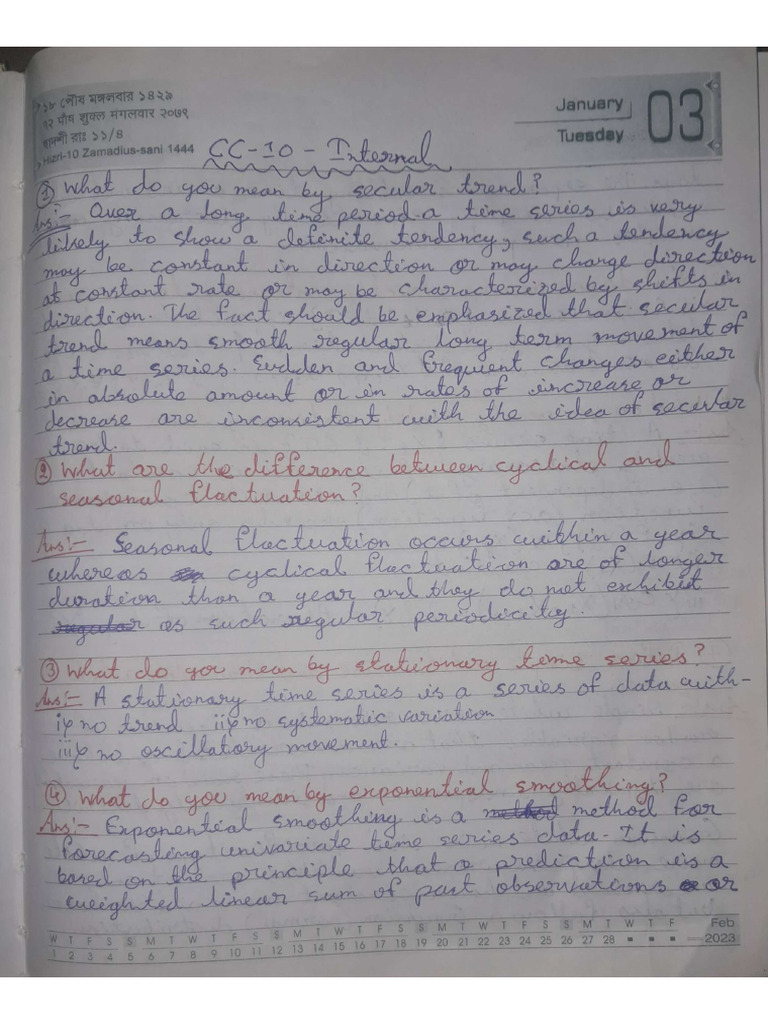 ১৮ পৌষ মঙ্গলবার ১৪২৯
१२ पौष शुक्ल मंगलवार २०७९
রাঃ ১১/৪
Hizri-10 Zamadius-sani 1444
January
Tuesday
03
CC-10 - Internal
① What do you mean by secular trend?
Ans:- Over a long time period a time series is very
likely to show a definite tendency, such a tendency
may be constant in direction or may change direction
at constant rate or may be characterized by shifts in
direction. The fact should be emphasized that secular
trend means smooth regular long term movement of
a time series. Sudden and frequent changes either
in absolute amount or in rates of increase or
decrease are inconsistent with the idea of secular
trend.
② What are the difference between cyclical and
seasonal flactuation?
Ans:- Seasonal flactuation occurs within a year
whereas cyclical flactuation are of longer
duration than a year and they do not exhibit
regular as such regular periodicity.
③ What do you mean by stationary time series?
Ans:- A stationary time series is a series of data with-
i) no trend ii) no systematic variation
iii) no oscillatory movement.
④ What do you mean by exponential smoothing?
Ans:- Exponential smoothing is a method method for
forecasting univariate time series data. It is
based on the principle that a prediction is a
weighted linear sum of past observations or
W T F S S M T W T F S S M T W T F S S M T W T F S S M T W T F Feb
1 2 3 4 5 6 7 8 9 10 11 12 13 14 15 16 17 18 19 20 21 22 23 24 25 26 27 28 2023